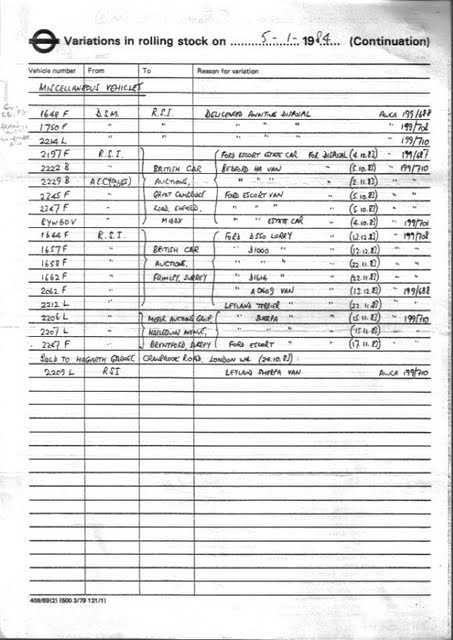 Variations in rolling stock on 5 - 1 - 1984 (Continuation)
Vehicle number From To Reason for variation
MISCELLANEOUS VEHICLES
1648 F D.I.M. R.S.I. DELICENCED AWAITING DISPOSAL AWCA 199/688
1750 F " " " " " " 199/708
2214 L " " " " " " 199/710
2197 F R.S.I. FORD ESCORT ESTATE CAR FOR DISPOSAL (4.10.83) " 199/687
2222 B " BRITISH CAR BEDFORD HA VAN " (5.10.83) " 199/710
2229 B AUCTIONS, " " " " (2.11.83) " "
2245 F " GREAT CAMBRIDGE FORD ESCORT VAN " (5.10.83) " "
2247 F " ROAD, ENFIELD, " " " " (5.10.83) " "
BYW 60V " MIDDX " " ESTATE CAR " (4.10.83) " 199/701
1644 F R.S.I. FORD D550 LORRY " (12.12.83) " 199/708
1657 F " BRITISH CAR " D1000 " " (12.12.83) " "
1658 F " AUCTIONS, " " " " (22.11.83) " "
1662 F " FRIMLEY, SURREY " D1614 " " (22.11.83) " "
2062 F " " A0609 VAN " (12.12.83) " 199/688
2212 L " LEYLAND TERRIER " (22.11.83) " "
2206 L " MOTOR AUCTIONS GROUP " SHERPA " (15.11.83) " 199/710
2207 L " " " " (15.11.83) " "
2267 F " BRENTFORD, FORD ESCORT " (17.11.83) " "
SOLD TO HOGARTH GARAGE, CRANBROOK ROAD, LONDON W4 (24.10.83):
2209 L R.S.I LEYLAND SHERPA VAN AWCA 199/710
408/89(2) (500 3/79 121/1)